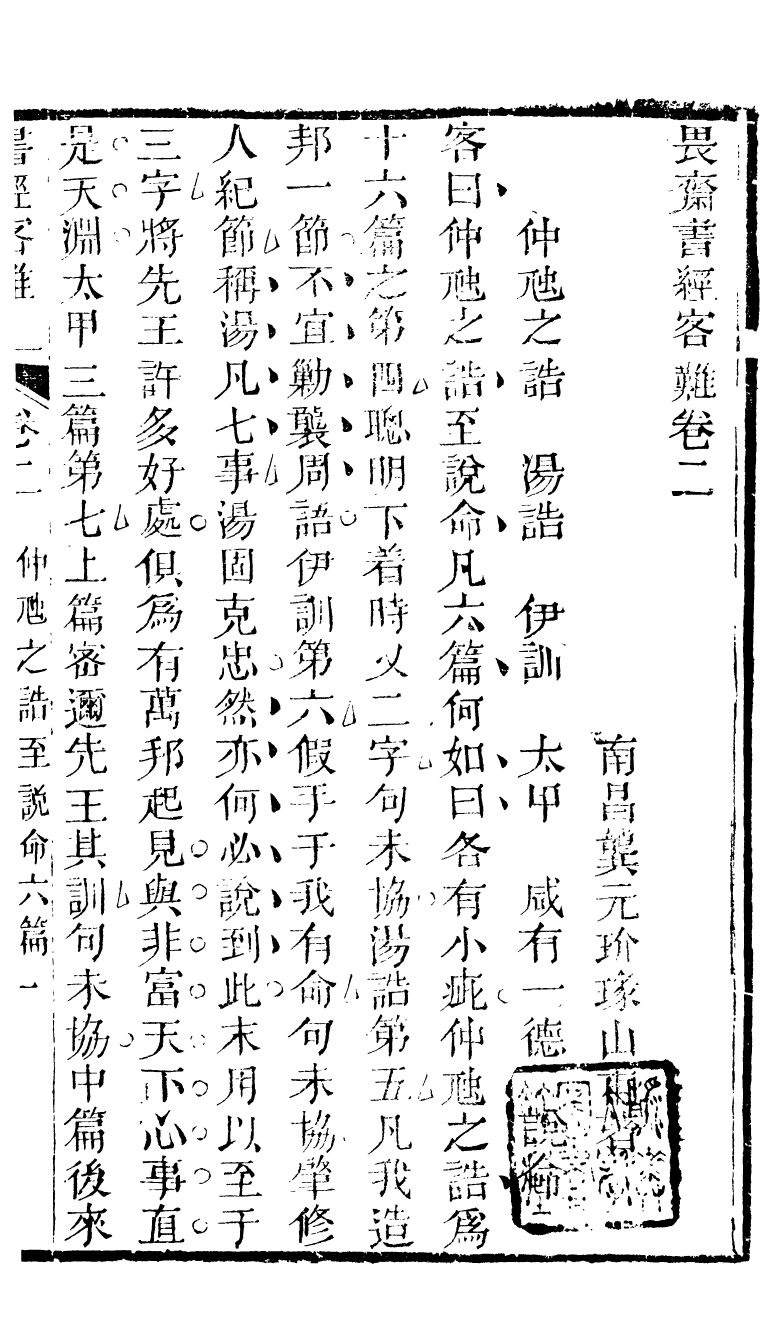 畏齋書經客難卷二
南昌龔元玠瑑山
仲虺之誥　湯誥　伊訓　太甲　咸有一德　說命
客曰仲虺之誥至說命凡六篇何如曰各有小疵仲虺之誥爲
十六篇之第四聰明下着時乂二字句未協湯誥第五凡我造
邦一節不宜勦襲周語伊訓第六假手于我有命句未協肇修
人紀節稱湯凡七事湯固克忠然亦何必說到此末用以至于
三字將先王許多好處俱爲有萬邦起見與非富天下心事直
是天淵太甲三篇第七上篇密邇先王其訓句未協中篇後來
書經客難　卷二　仲虺之誥至說命六篇　一